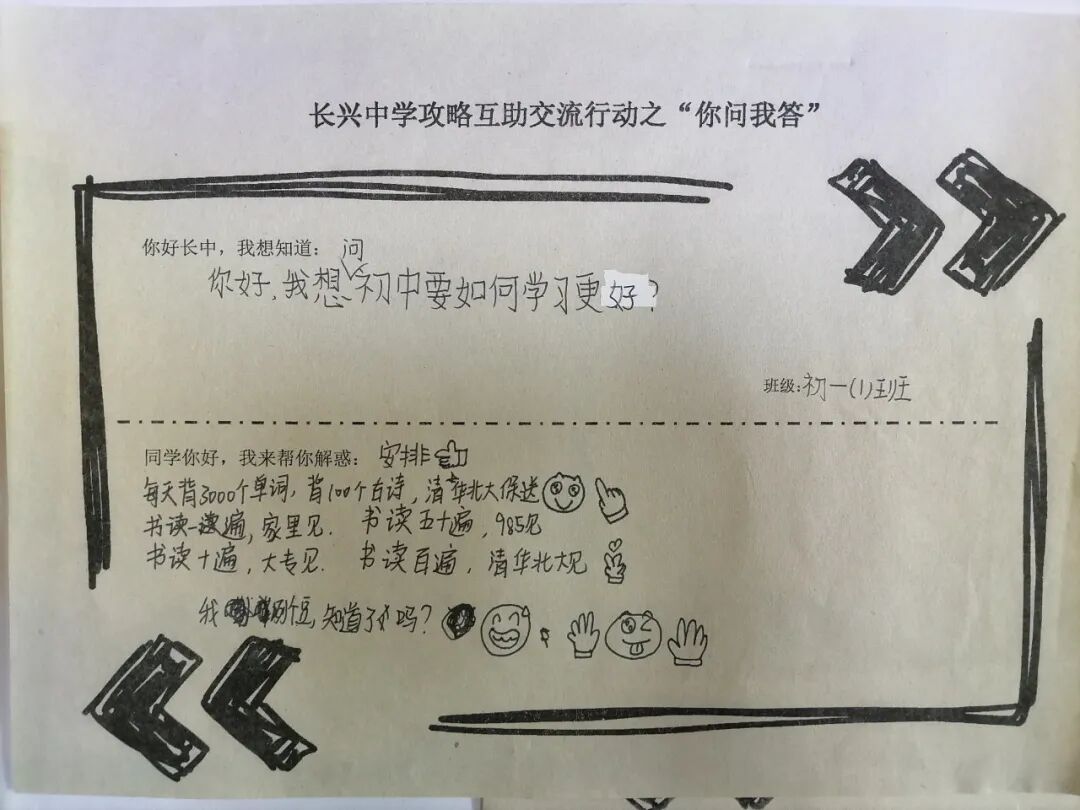 长兴中学攻略互助交流行动之“你问我答”
你好长中，我想知道：
问
你好,我想初中要如何学习更好?
班级:初一(1)班
同学你好，我来帮你解惑： 安排
每天背3000个单词，背100个古诗，清华北大保送
书读一遍，家里见. 书读五十遍，985见
书读十遍，大专见. 书读百遍，清华北大见
我 知道了吗?